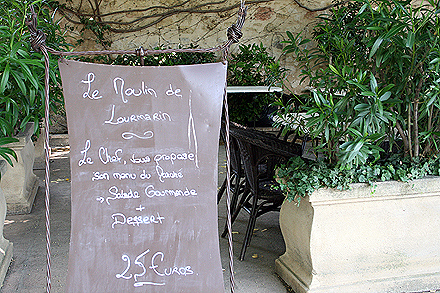 Le Moulin de
Lourmarin
Le Chef, vous propose
son menu du Marché
→ Salade Gourmande
+
Dessert
25 Euros.